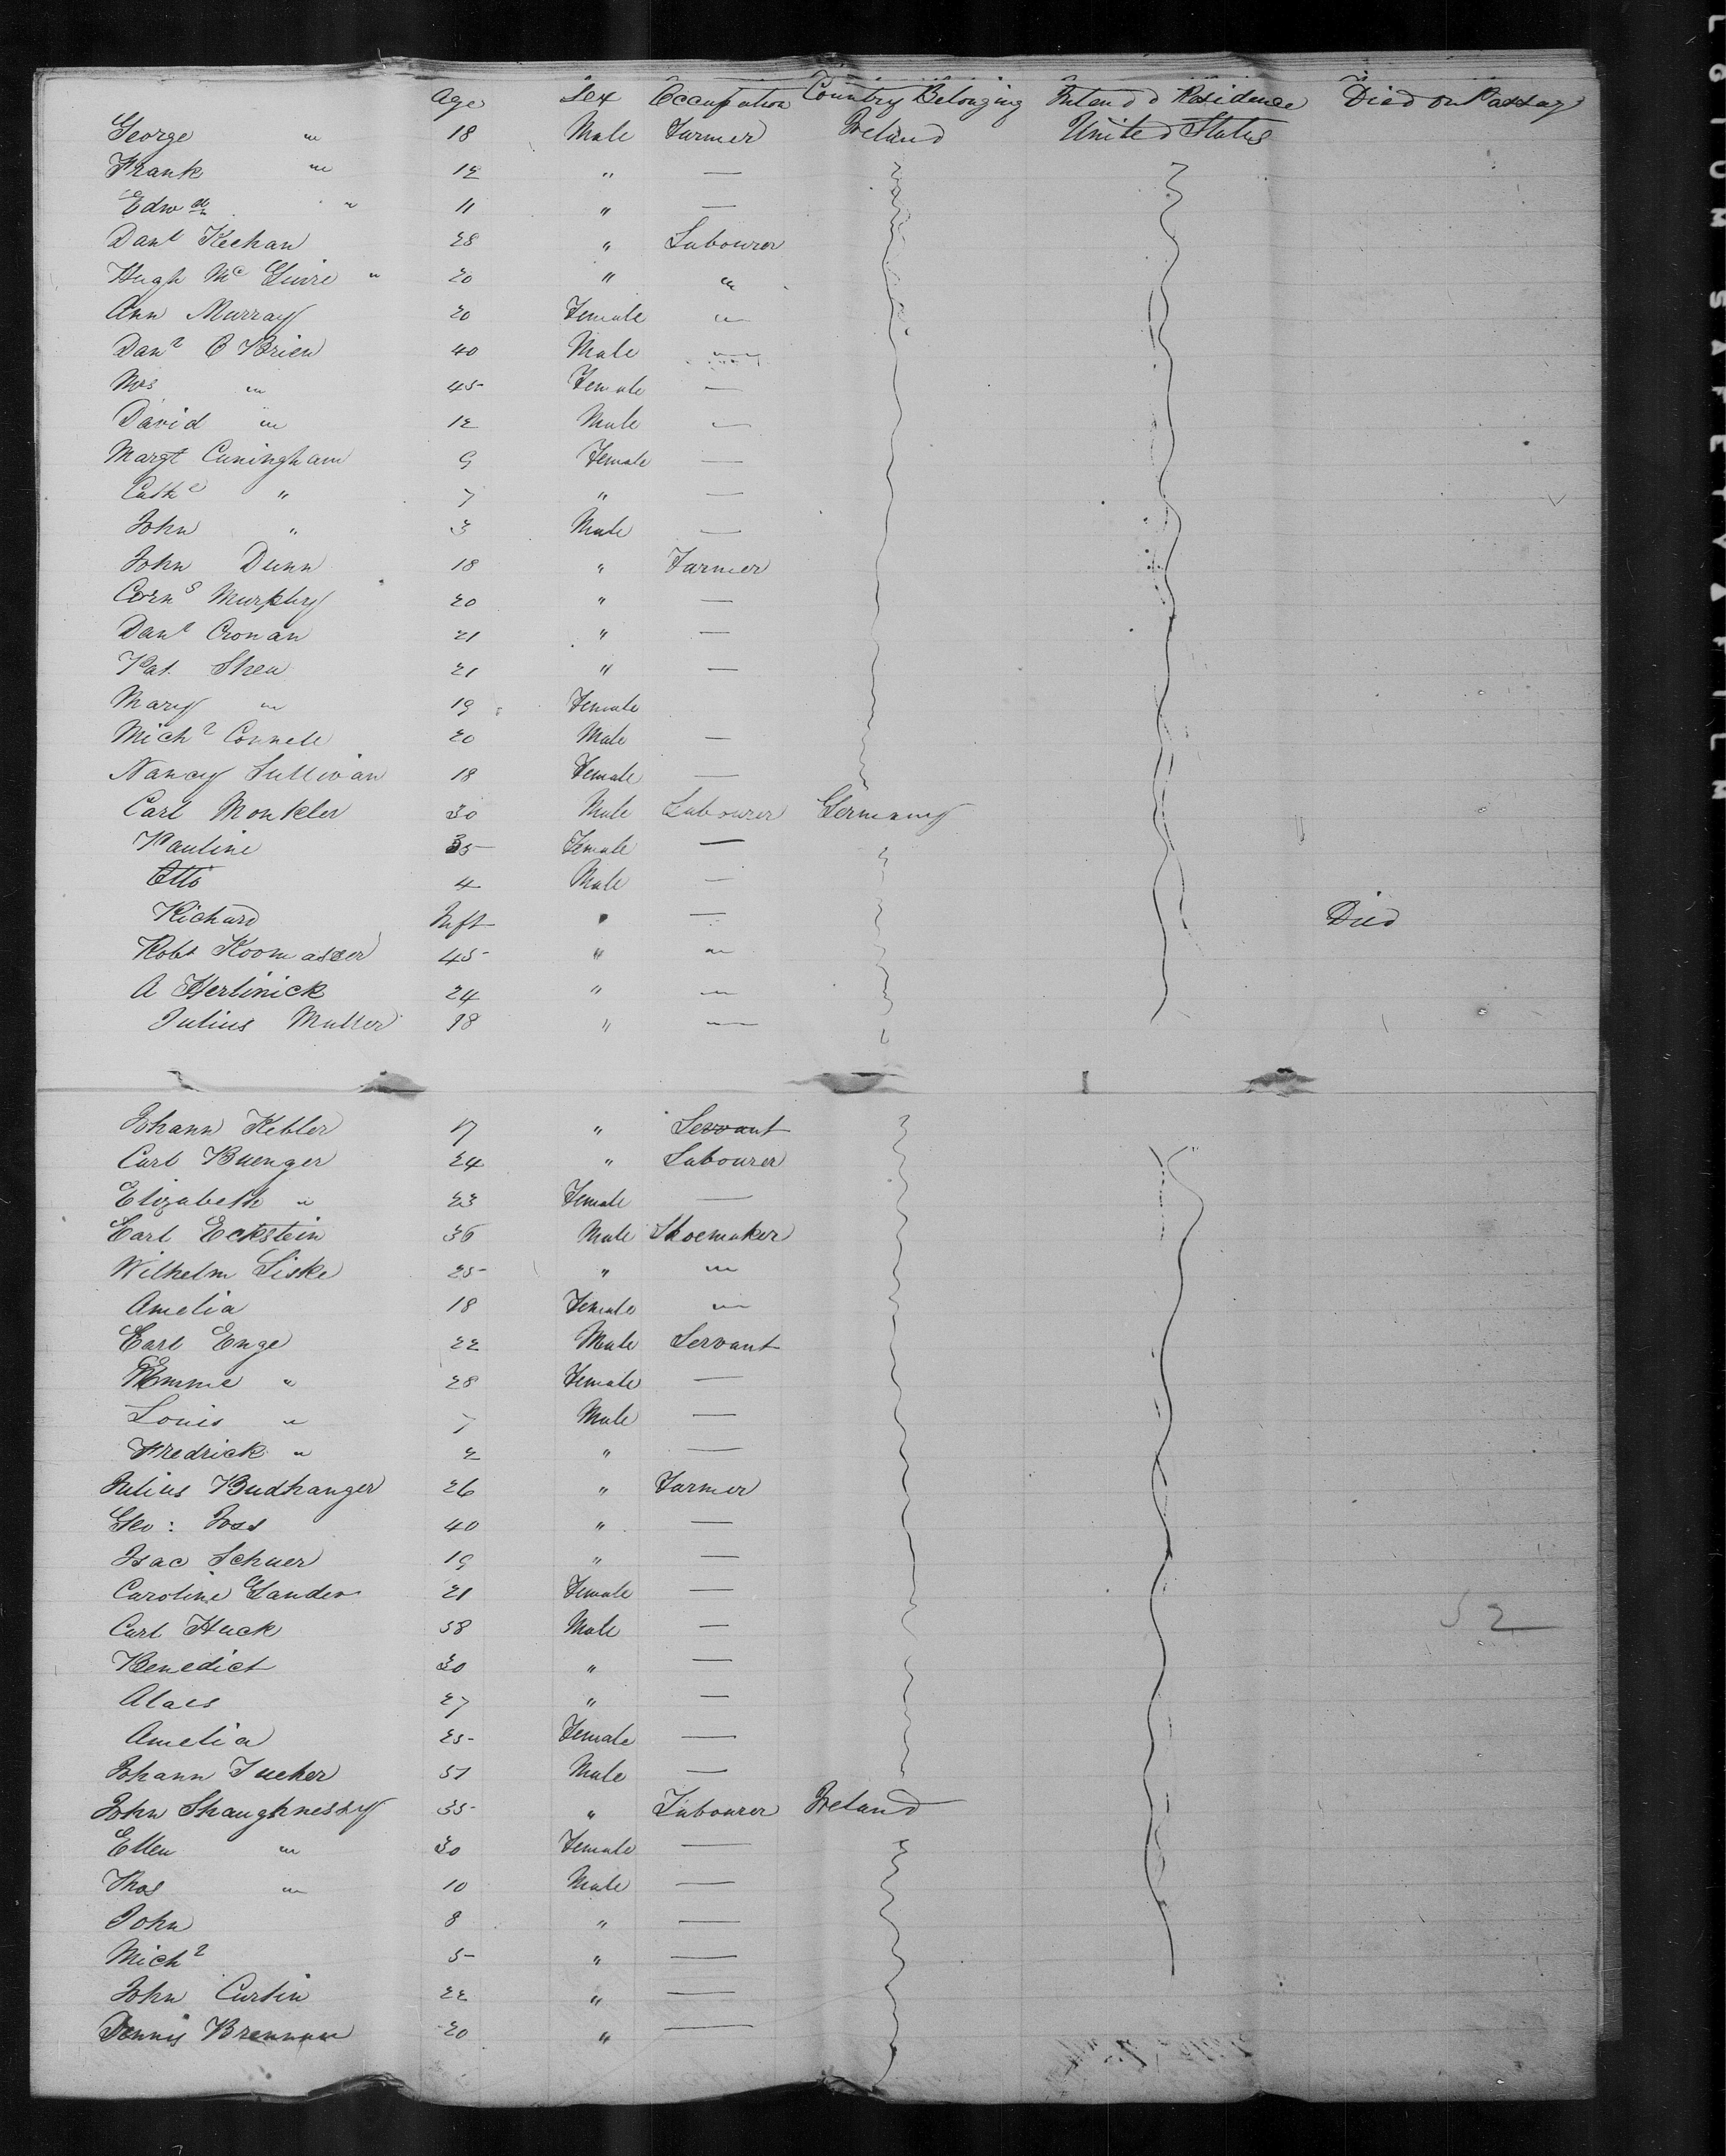 Age Sex Occupation Country Belonging Intend d Residence Died on Passage
George " 18 Male Farmer Ireland United States
Frank " 12 " —
Edwd " 11 " —
Danl Keehan 28 " Labourer
Hugh Mc Guire " 20 " "
Ann Murray 20 Female "
Danl O Brien 40 Male "
Mrs " 45 Female —
David " 12 Male —
Margt Cuningham 9 Female —
Cathe " 7 " —
John " 3 Male —
John Dunn 18 " Farmer
Corns Murphy 20 " —
Danl Cronan 21 " —
Pat Shea 21 " —
Mary " 19 Female
Michl Connell 20 Male —
Nancy Sullivan 18 Female —
Carl Monkler 30 Male Labourer Germany
Pauline 35 Female —
Otto 4 Male —
Richard Inft " — Died
Robt 45 " "
A Herlinick 24 " "
Julius Muller 18 " "
Johann Kebler 17 " Servant
Carl Buenger 24 " Labourer
Elizabeth " 23 Female —
Earl Eckstein 36 Male Shoemaker
Wilhelm Liske 25 " "
Amelia 18 Female "
Earl Enge 22 Male Servant
Emme " 28 Female —
Louis " 7 Male —
Fredrick " 2 " —
Julius Budhanger 26 " Farmer
Geo: Joss 40 " —
Isac Schuer 19 " —
Caroline Gander 21 Female —
Carl Huck 58 Male —
Benedict 30 " —
Alaes 27 " —
Amelia 25 Female —
Johann Tucher 51 Male —
John Shaughnessy 35 " Labourer Ireland
Ellen " 30 Female —
Thos " 10 Male —
John 8 " —
Michl 5 " —
John Curtin 22 " —
Dennis Brennan 20 " —
52
LGIUM SAFETY▲FILM